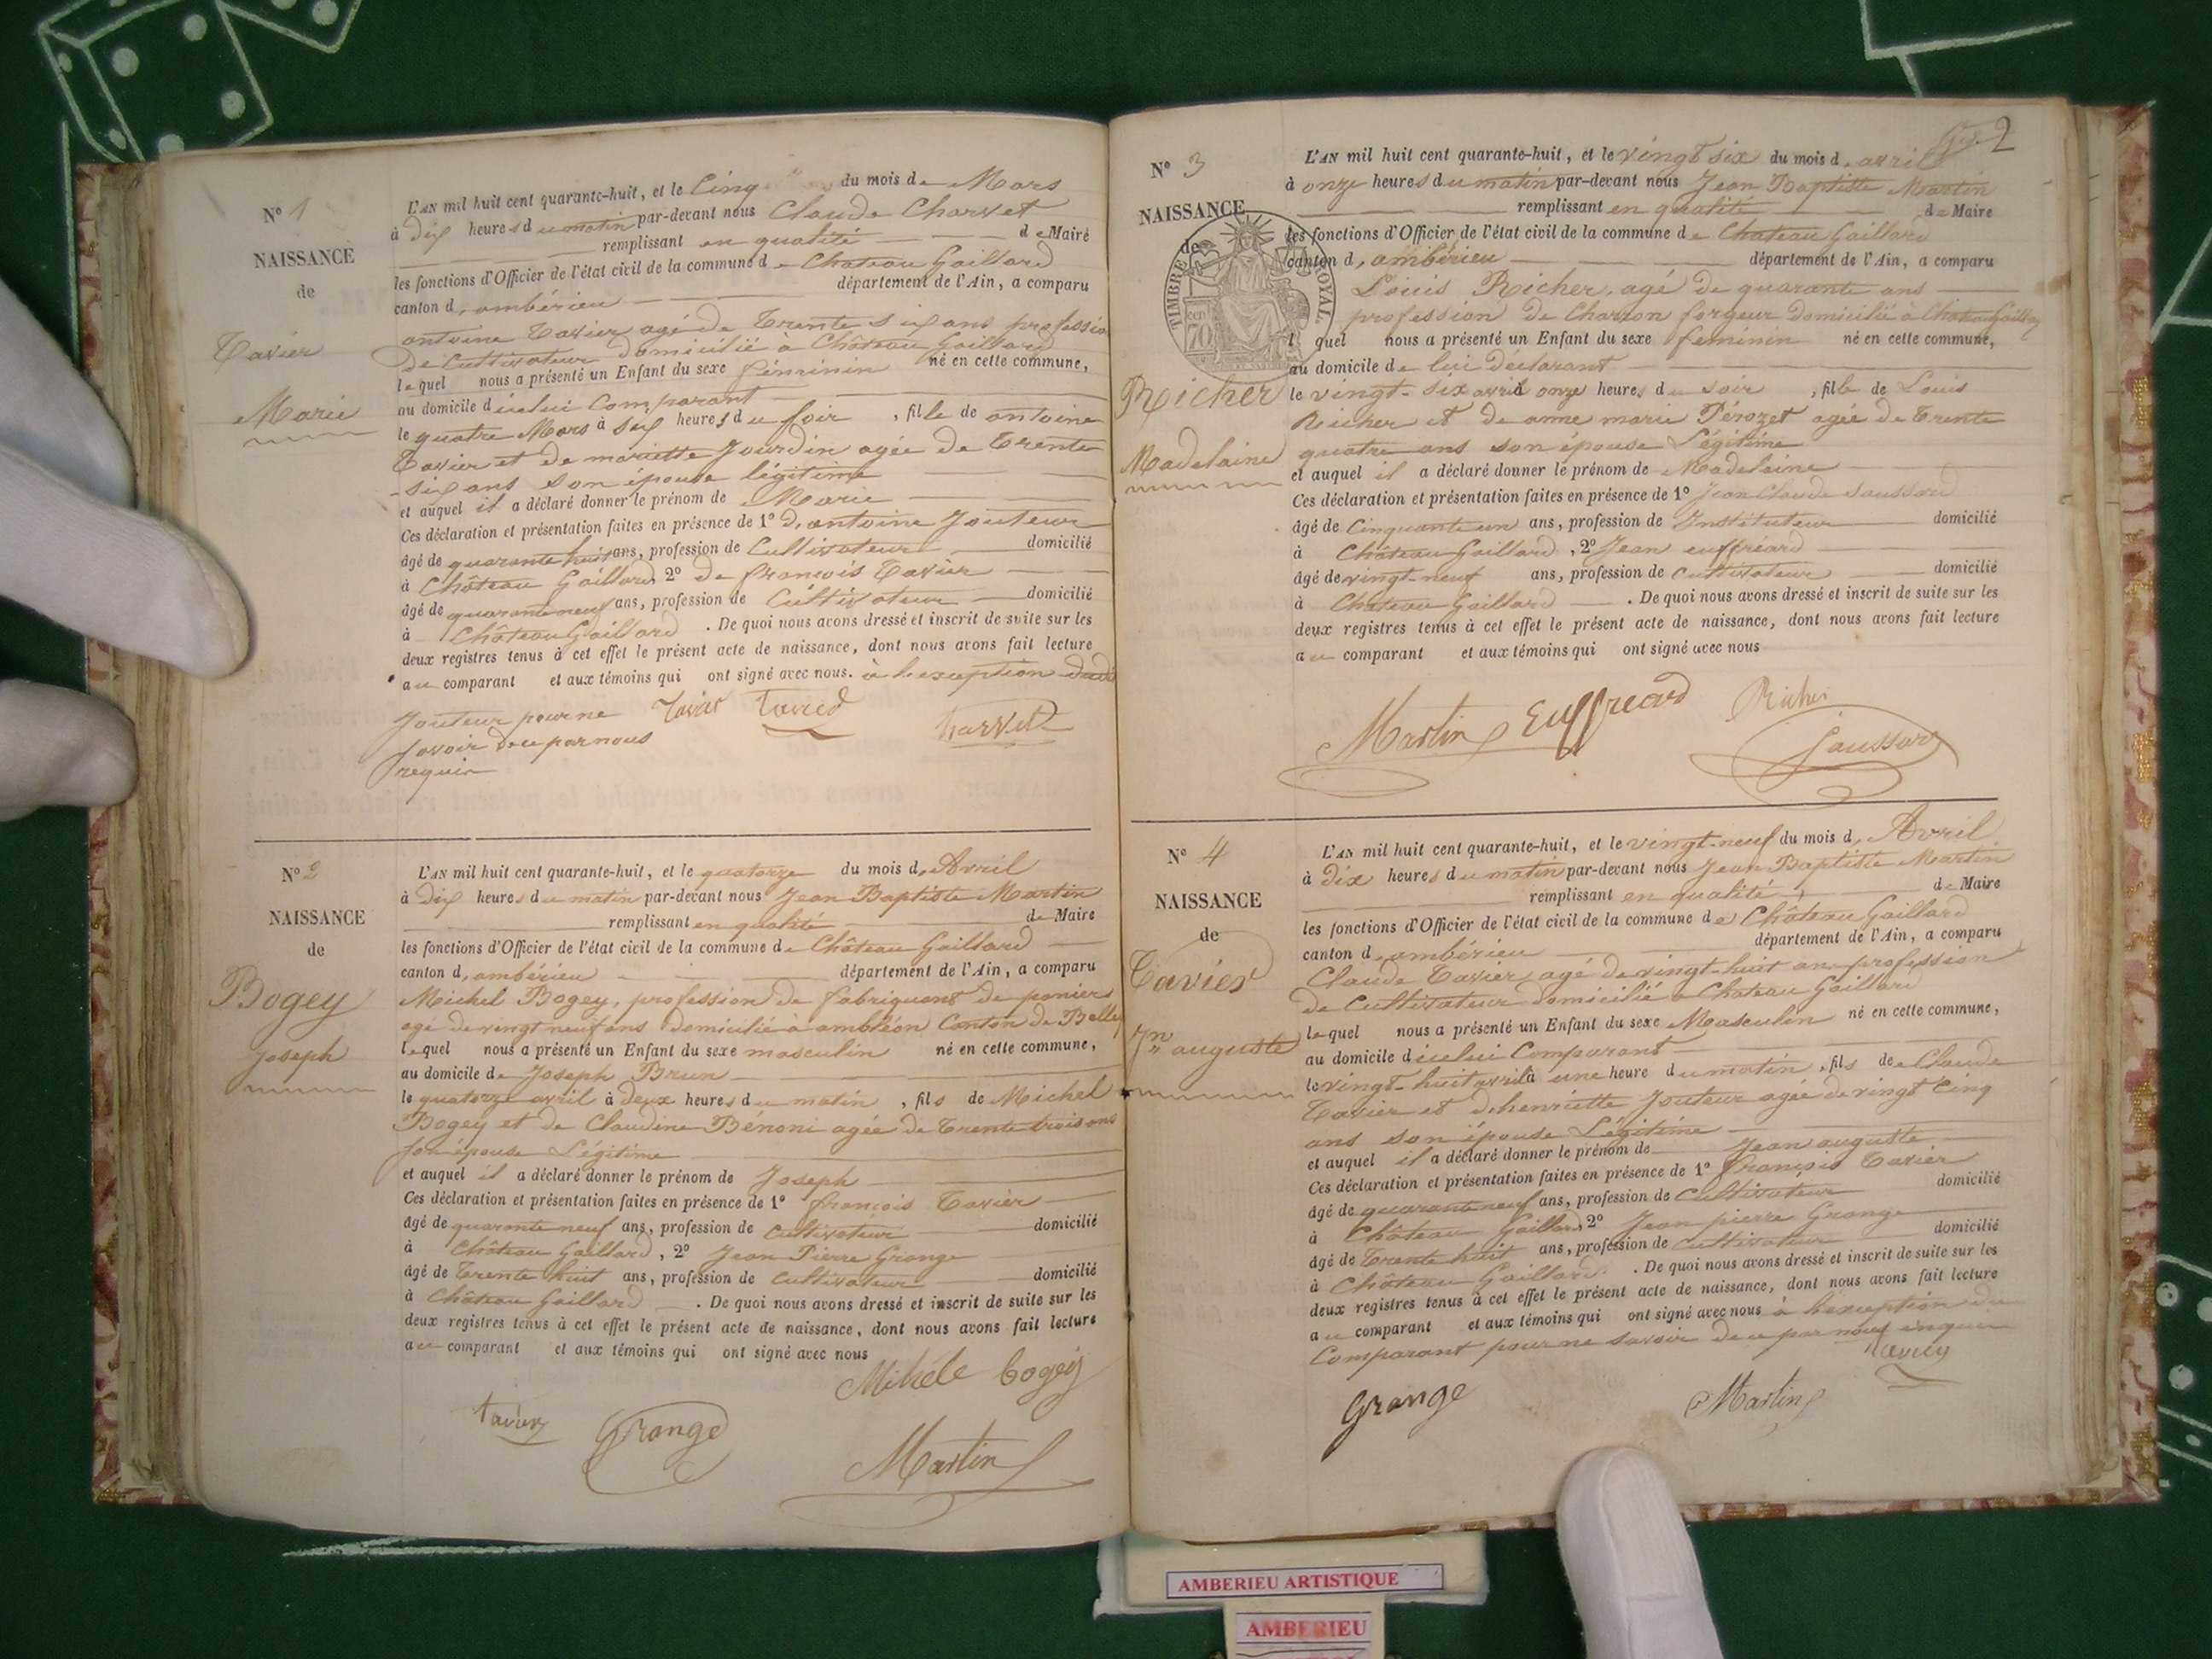 N° 1
NAISSANCE
de
Tavier
Marie
L'AN mil huit cent quarante-huit, et le Cinq du mois de Mars
à dix heures du matin par-devant nous Claude Charvet
remplissant en qualité de Maire
les fonctions d'Officier de l'état civil de la commune de Chateau Gaillard
canton d'ambérieu département de l'Ain, a comparu
antoine Tavier agé de Trente six ans profession
de Cultivateur domicilié à Château Gaillard
lequel nous a présenté un Enfant du sexe féminin né en cette commune,
au domicile d'icelui Comparant
le quatre Mars à six heures du soir, fille de antoine
Tavier et de mariette Jourdin agée de Trente
-six ans son épouse légitime
et auquel il a déclaré donner le prénom de Marie
Ces déclaration et présentation faites en présence de 1° d'antoine Jouteur
âgé de quarante huit ans, profession de Cultivateur domicilié
à Château Gaillard 2° de françois Tavier
âgé de quarante neuf ans, profession de Cultivateur domicilié
à Château Gaillard. De quoi nous avons dressé et inscrit de suite sur les
deux registres tenus à cet effet le présent acte de naissance, dont nous avons fait lecture
au comparant et aux témoins qui ont signé avec nous. à l'exception dudit
Jouteur pour ne
savoir de ce par nous
requis
Charvet
N° 2
NAISSANCE
de
Bogey
Joseph
L'AN mil huit cent quarante-huit, et le quatorze du mois d'Avril
à Dix heures du matin par-devant nous Jean Baptiste Martin
remplissant en qualité de Maire
les fonctions d'Officier de l'état civil de la commune de Château Gaillard
canton d'ambérieu département de l'Ain, a comparu
Michel Bogey, profession de fabriquant de paniers
agé de vingt neuf ans domicilié à ambléon Canton de Belley
lequel nous a présenté un Enfant du sexe masculin né en cette commune,
au domicile de Joseph Brun
le quatorze avril à deux heures du matin, fils de Michel
Bogey et de Claudine Bénoni agée de Trente trois ans
son épouse Légitime
et auquel il a déclaré donner le prénom de Joseph
Ces déclaration et présentation faites en présence de 1° françois Tavier
âgé de quarante neuf ans, profession de Cultivateur domicilié
à Château Gaillard, 2° Jean Pierre Grange
âgé de Trente huit ans, profession de Cultivateur domicilié
à Château Gaillard. De quoi nous avons dressé et inscrit de suite sur les
deux registres tenus à cet effet le présent acte de naissance, dont nous avons fait lecture
au comparant et aux témoins qui ont signé avec nous
Mikele bogey
tavier Grange
Martin
2
N° 3
NAISSANCE
de
TIMBRE ROYAL
70 cen
Richer
Madelaine
L'AN mil huit cent quarante-huit, et le vingt six du mois d'avril
à onze heures du matin par-devant nous Jean Baptiste Martin
remplissant en qualité de Maire
les fonctions d'Officier de l'état civil de la commune de Chateau Gaillard
canton d'ambérieu département de l'Ain, a comparu
Louis Richer, agé de quarante ans
profession de Charron forgeur domicilié à Chateau Gaillard
lequel nous a présenté un Enfant du sexe féminin né en cette commune,
au domicile de lui déclarant
le vingt-six avril onze heures du soir, fille de Louis
Richer et de anne marie Pérozet agée de Trente
quatre ans son épouse Légitime
et auquel il a déclaré donner le prénom de Madelaine
Ces déclaration et présentation faites en présence de 1° Jean Claude Saussard
âgé de Cinquante un ans, profession de Instituteur domicilié
à Château Gaillard, 2° Jean euffréard
âgé de vingt-neuf ans, profession de Cultivateur domicilié
à Chateau Gaillard. De quoi nous avons dressé et inscrit de suite sur les
deux registres tenus à cet effet le présent acte de naissance, dont nous avons fait lecture
au comparant et aux témoins qui ont signé avec nous
Martin Euffreard Richer
Saussard
N° 4
NAISSANCE
de
Tavier
Jn auguste
L'AN mil huit cent quarante-huit, et le vingt-neuf du mois d'Avril
à dix heures du matin par-devant nous Jean Baptiste Martin
remplissant en qualité de Maire
les fonctions d'Officier de l'état civil de la commune de Château Gaillard
canton d'ambérieu département de l'Ain, a comparu
Claude Tavier agé de vingt-huit ans profession
de Cultivateur domicilié à Chateau Gaillard
lequel nous a présenté un Enfant du sexe Masculin né en cette commune,
au domicile d'icelui Comparant
le vingt-huit avril à une heure du matin, fils de Claude
Tavier et d'henriette Jouteur agée de vingt Cinq
ans son épouse Légitime
et auquel il a déclaré donner le prénom de Jean auguste
Ces déclaration et présentation faites en présence de 1° françois Tavier
âgé de quarante neuf ans, profession de Cultivateur domicilié
à Château Gaillard 2° Jean pierre Grange
âgé de Trente huit ans, profession de Cultivateur domicilié
à Château Gaillard. De quoi nous avons dressé et inscrit de suite sur les
deux registres tenus à cet effet le présent acte de naissance, dont nous avons fait lecture
au comparant et aux témoins qui ont signé avec nous à l'exception du
Comparant pour ne savoir de ce par nous
Grange Martin
AMBERIEU ARTISTIQUE
AMBERIEU